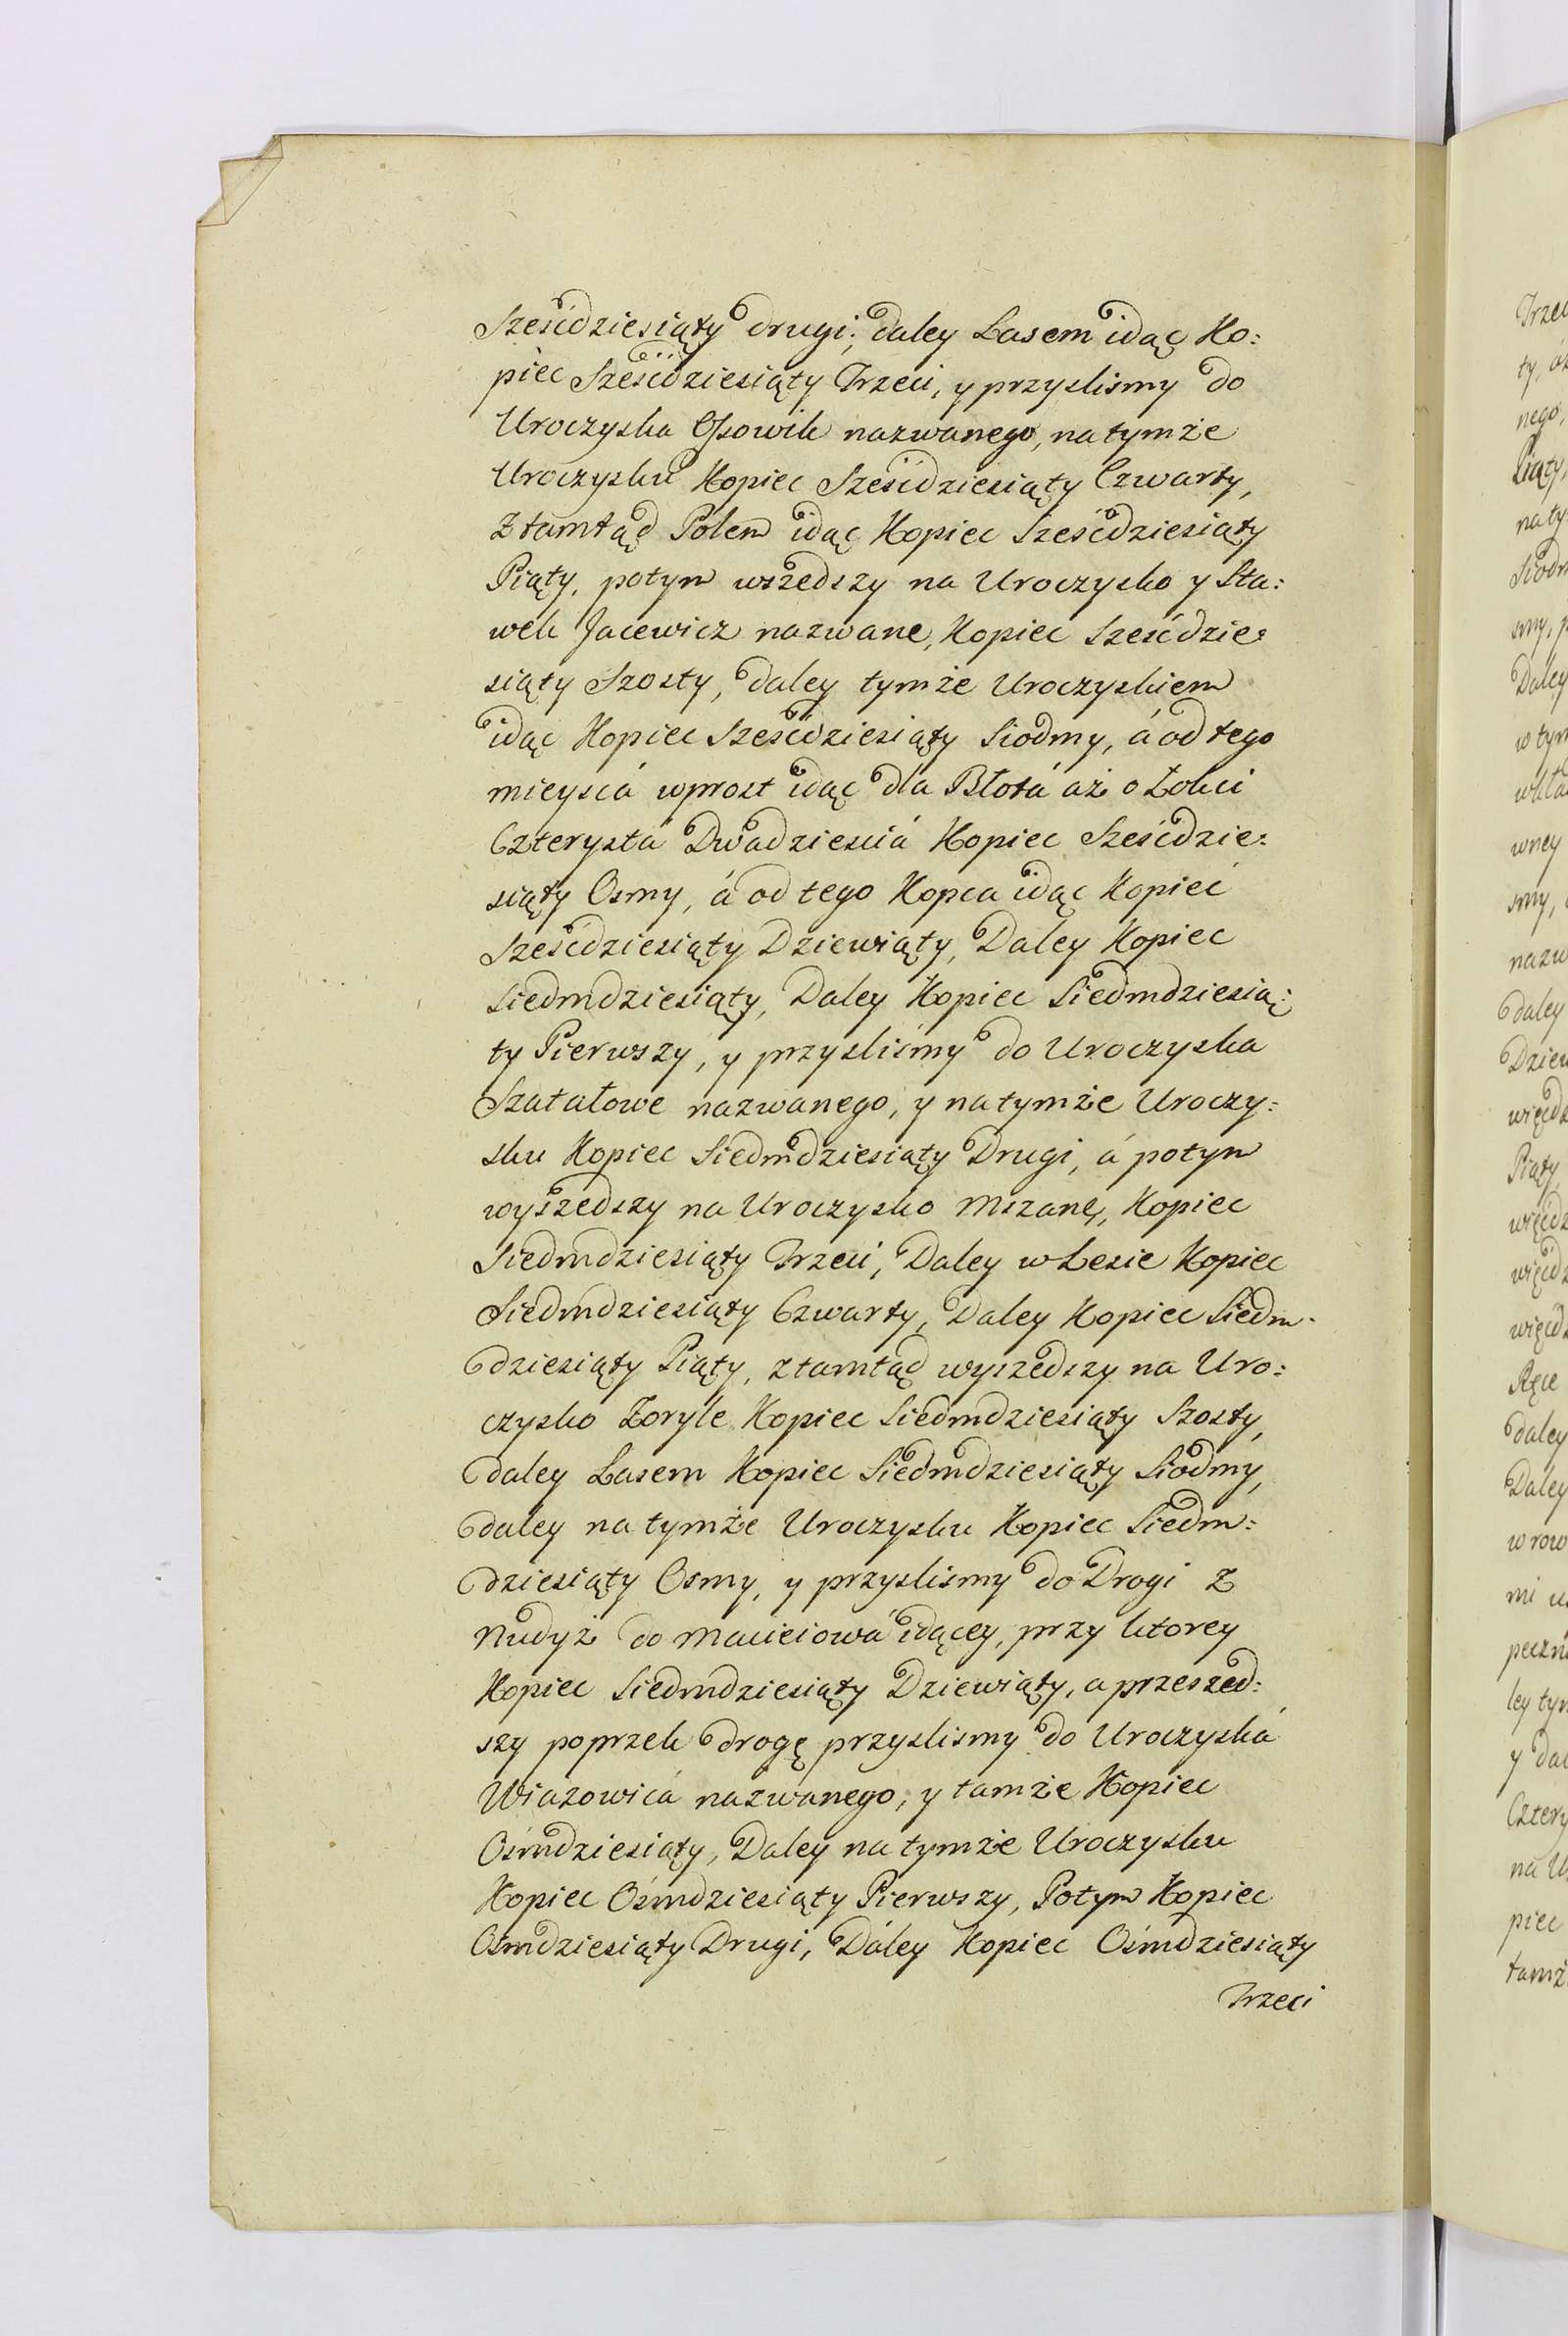 Sześćdziesiąty drugi; daley Lasem idąc Ko:
piec Sześćdziesiąty Trzeci, y przyslismy do
Uroczyska Ossowik nazwanego, na tymże
Uroczysku Kopiec Sześćdziesiąty Czwarty,
Ztamtąd Polem idąc Kopiec Sześćdziesiąty
Piąty, potym wszedszy na Uroczysko y Sta:
wek Jacewicz nazwane, Kopiec Sześćdzie:
siąty Szosty, daley tymże Uroczyskiem
idąc Kopiec Sześćdziesiąty Siodmy, á od tego
mieyscá wprost idąc dla Błotá aż o Łokci
Czterystá Dwadziesciá Kopiec Sześćdzie:
siąty Osmy, á od tego Kopca idąc Kopiec
Sześćdziesiąty Dziewiąty, Daley Kopiec
Siedmdziesiąty, Daley Kopiec Siedmdziesią:
ty Pierwszy, y przyslismy do Uroczyska
Szatałowe nazwanego, y na tymże Uroczy:
sku Kopiec Siedmdziesiąty Drugi, á potym
wyszedszy na Uroczysko Mszane, Kopiec
Siedmdziesiąty Trzeci, Daley w Lesie Kopiec
Siedmdziesiąty Czwarty, Daley Kopiec Siedm:
dziesiąty Piąty, ztamtąd wyszedszy na Uro:
czysko Zoryle Kopiec Siedmdziesiąty Szosty,
daley Lasem Kopiec Siedmdziesiąty Siodmy,
daley na tymże Uroczysku Kopiec Siedm:
dziesiąty Osmy, y przyslismy do Drogi z
Nudyż do Macieiowá idącey, przy ktorey
Kopiec Siedmdziesiąty Dziewiąty, a przeszed:
szy poprzek drogę przyslismy do Uroczyská
Wiazowicá nazwanego, y tamże Kopiec
Ośmdziesiąty, Daley na tymże Uroczysku
Kopiec Ośmdziesiąty Pierwszy, Potym Kopiec
Ośmdziesiąty Drugi, Dáley Kopiec Ośmdziesiąty
Trzeci